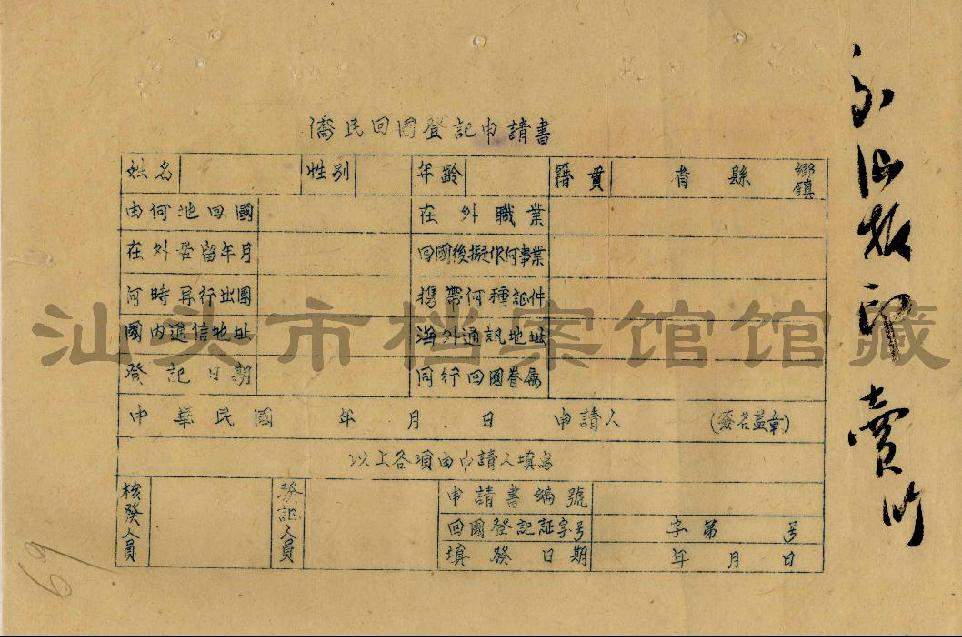 僑民回國登記申請書
姓名 性別 年齡 籍貫 省 縣 鄉鎮
由何地回國 在外職業
在外居留年月 回國後擬作何事業
何時再行出國 携帶何種証件
國內通信地址 海外通訊地址
登記日期 同行回國眷屬
中華民國 年 月 日 申請人 (簽名蓋章)
以上各項由申請人填寫
核發人員 發証人員 申請書編號
回國登記証字号 字第 号
填發日期 年 月 日
汕头市档案馆馆藏
69